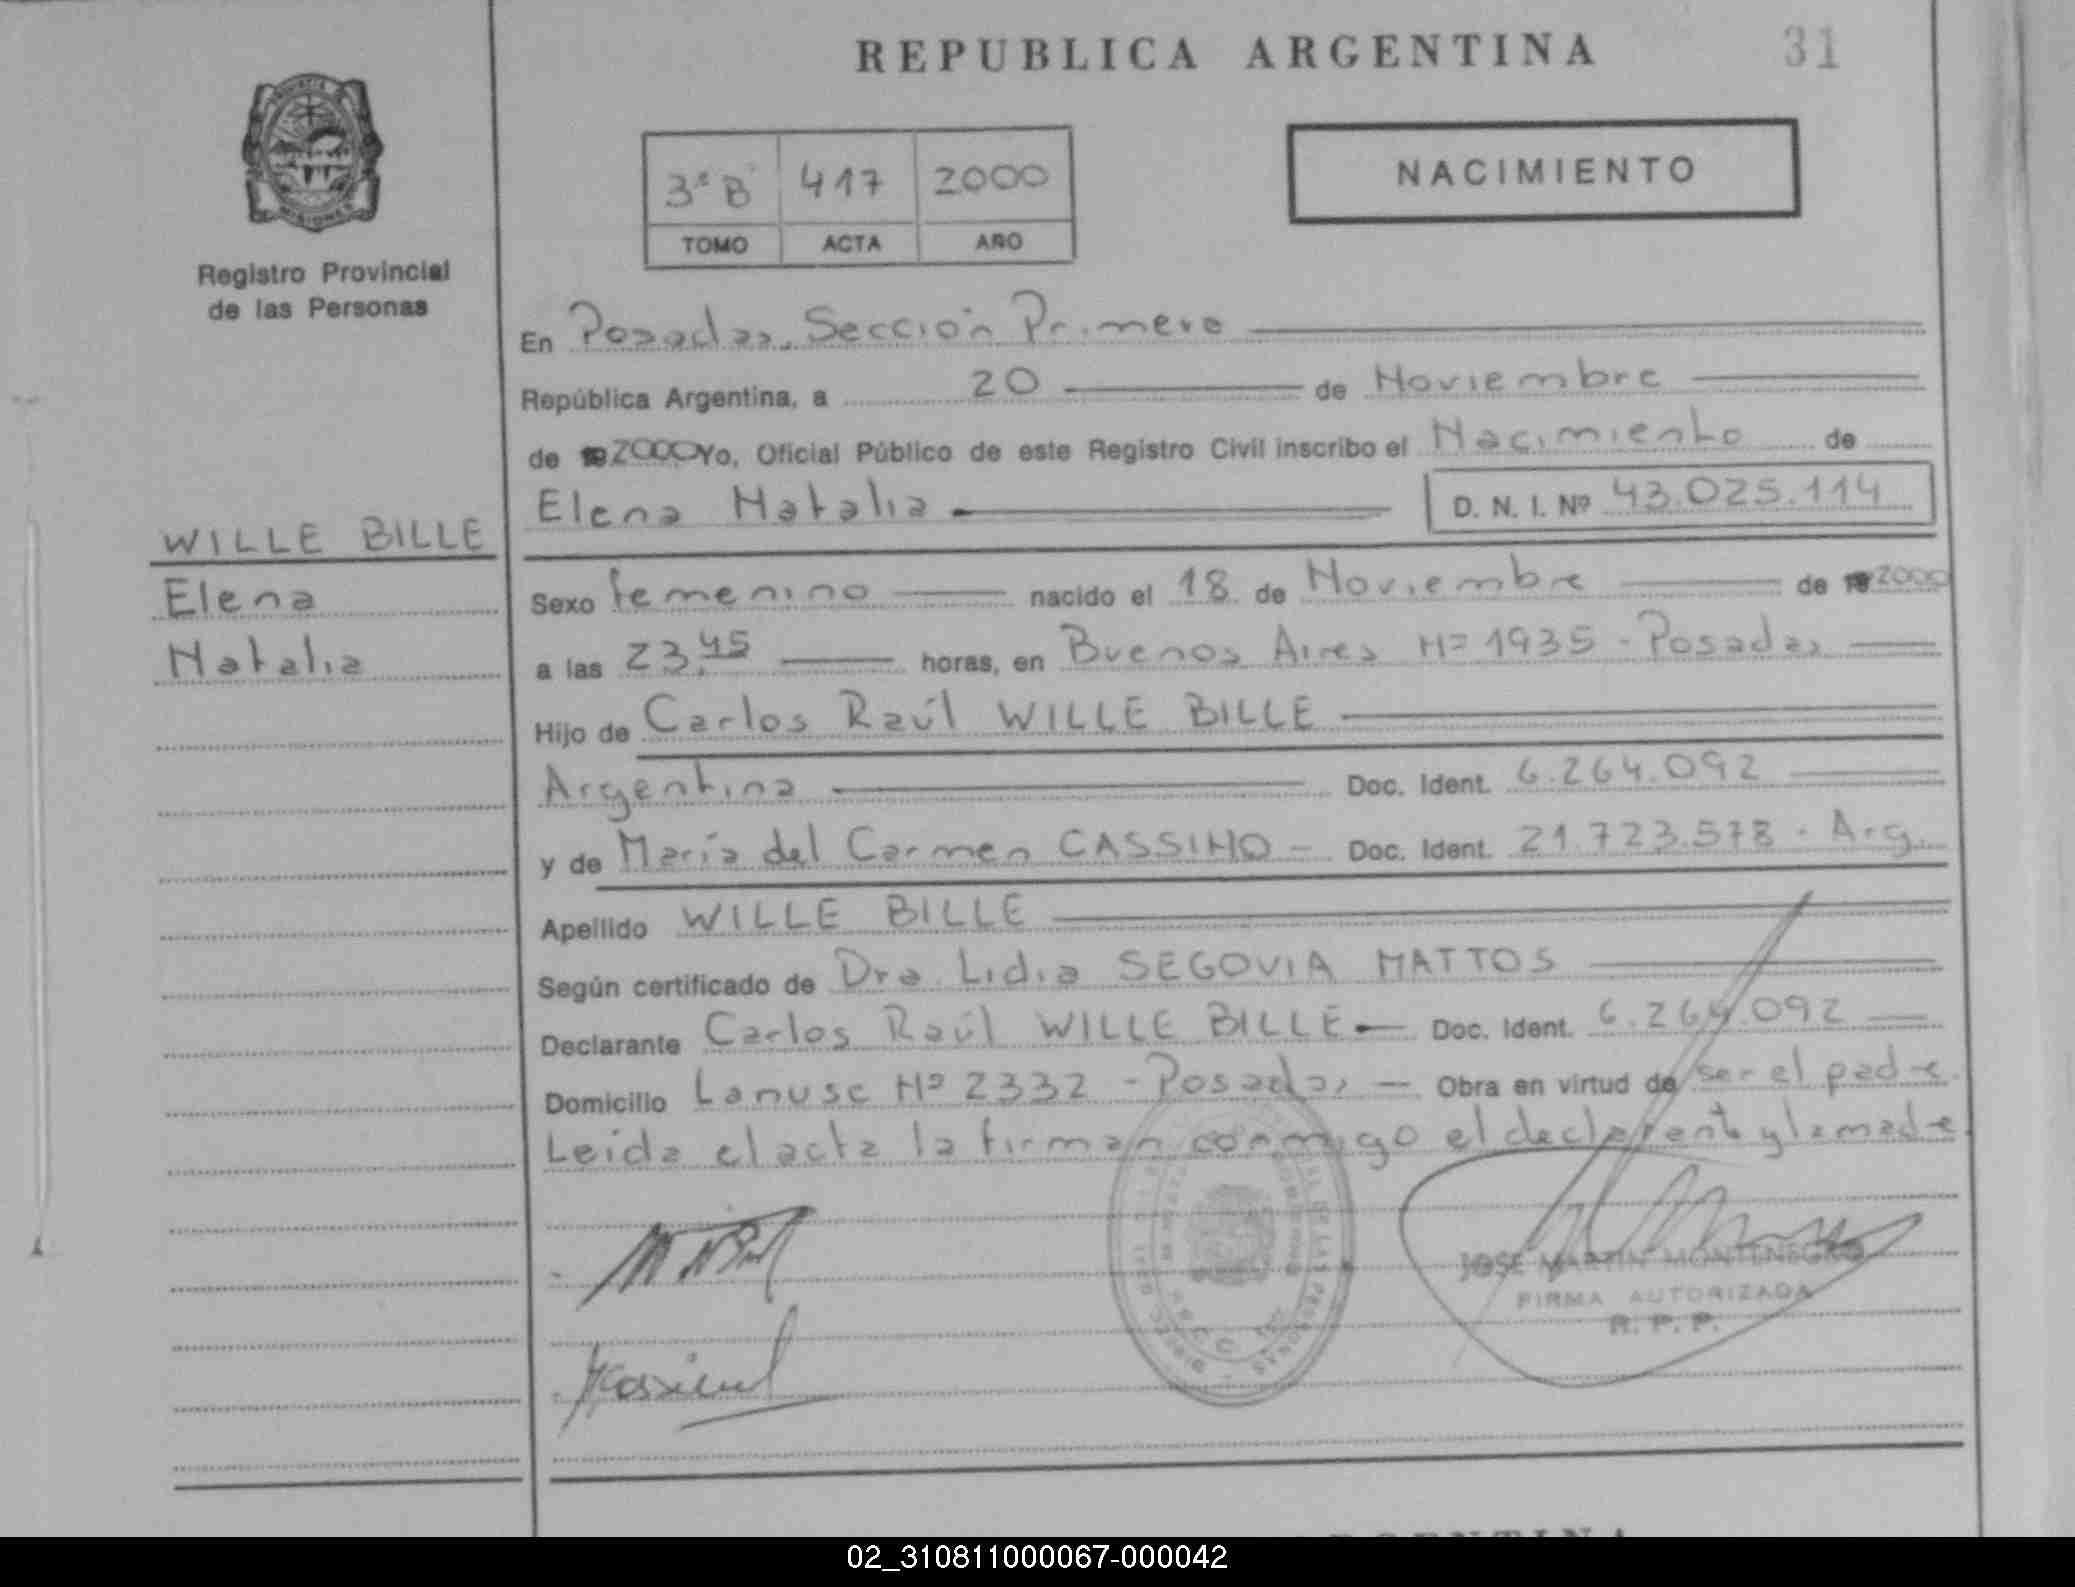 REPUBLICA ARGENTINA 31
NACIMIENTO
3ª B 417 2000
TOMO ACTA AÑO
Registro Provincial
de las Personas
En Posadas, Sección Primera
República Argentina, a 20 de Noviembre
de 2000 Yo, Oficial Público de este Registro Civil inscribo el Nacimiento de
Elena Natalia D. N. I. Nº 43.025.114
WILLE BILLE
Elena
Natalia
Sexo femenino nacido el 18 de Noviembre de 2000
a las 23,45 horas, en Buenos Aires Nº 1935 - Posadas
Hijo de Carlos Raúl WILLE BILLE
Argentina Doc. Ident. 6.264.092
y de María del Carmen CASSINO - Doc. Ident. 21.723.578 - Arg.
Apellido WILLE BILLE
Según certificado de Dra. Lidia SEGOVIA MATTOS
Declarante Carlos Raúl WILLE BILLE Doc. Ident. 6.264.092
Domicilio Lanusse Nº 2332 - Posadas - Obra en virtud de ser el padre.
Leída el acta la firman conmigo el declarante y la madre.
JOSE MARTIN MONTENEGRO
FIRMA AUTORIZADA
R. P. P.
02_310811000067-000042